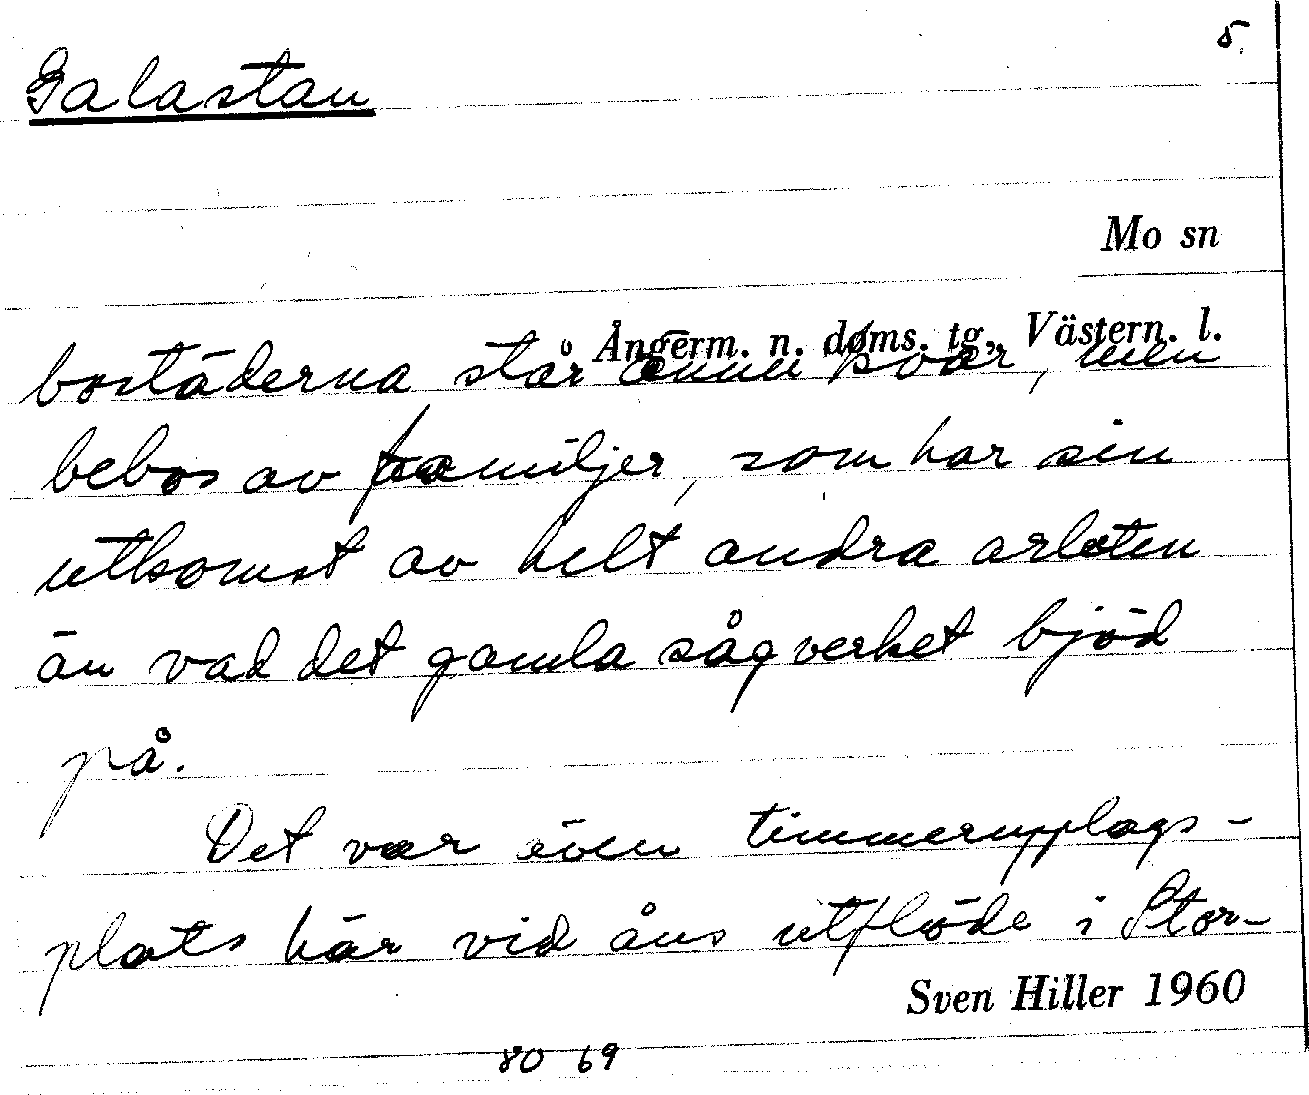 5.
Galastan
Mo sn
Ångerm. n. doms. tg., Västern. l.
bostäderna står ännu kvar, men
bebos av familjer, som har sin
utkomst av helt andra arbeten
än vad det gamla sågverket bjöd
på.
Det var även timmerupplags-
plats här vid åns utflöde i Stor-
Sven Hiller 1960
80 69